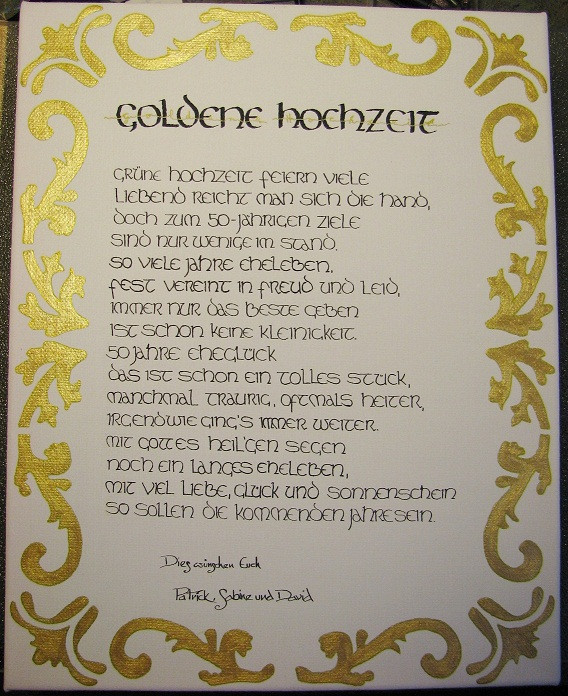 Goldene Hochzeit
Grüne Hochzeit feiern viele
Liebend reicht man sich die Hand,
doch zum 50-jährigen Ziele
sind nur wenige im Stand.
So viele Jahre Eheleben,
fest vereint in Freud und Leid,
immer nur das Beste geben
ist schon keine Kleinigkeit.
50 Jahre Eheglück
das ist schon ein tolles Stück,
manchmal traurig, oftmals heiter,
irgendwie ging's immer weiter.
Mit Gottes heil'gen Segen
noch ein langes Eheleben,
mit viel Liebe, Glück und Sonnenschein
so sollen die kommenden Jahre sein.
Dies wünschen Euch
Patrick, Sabine und David